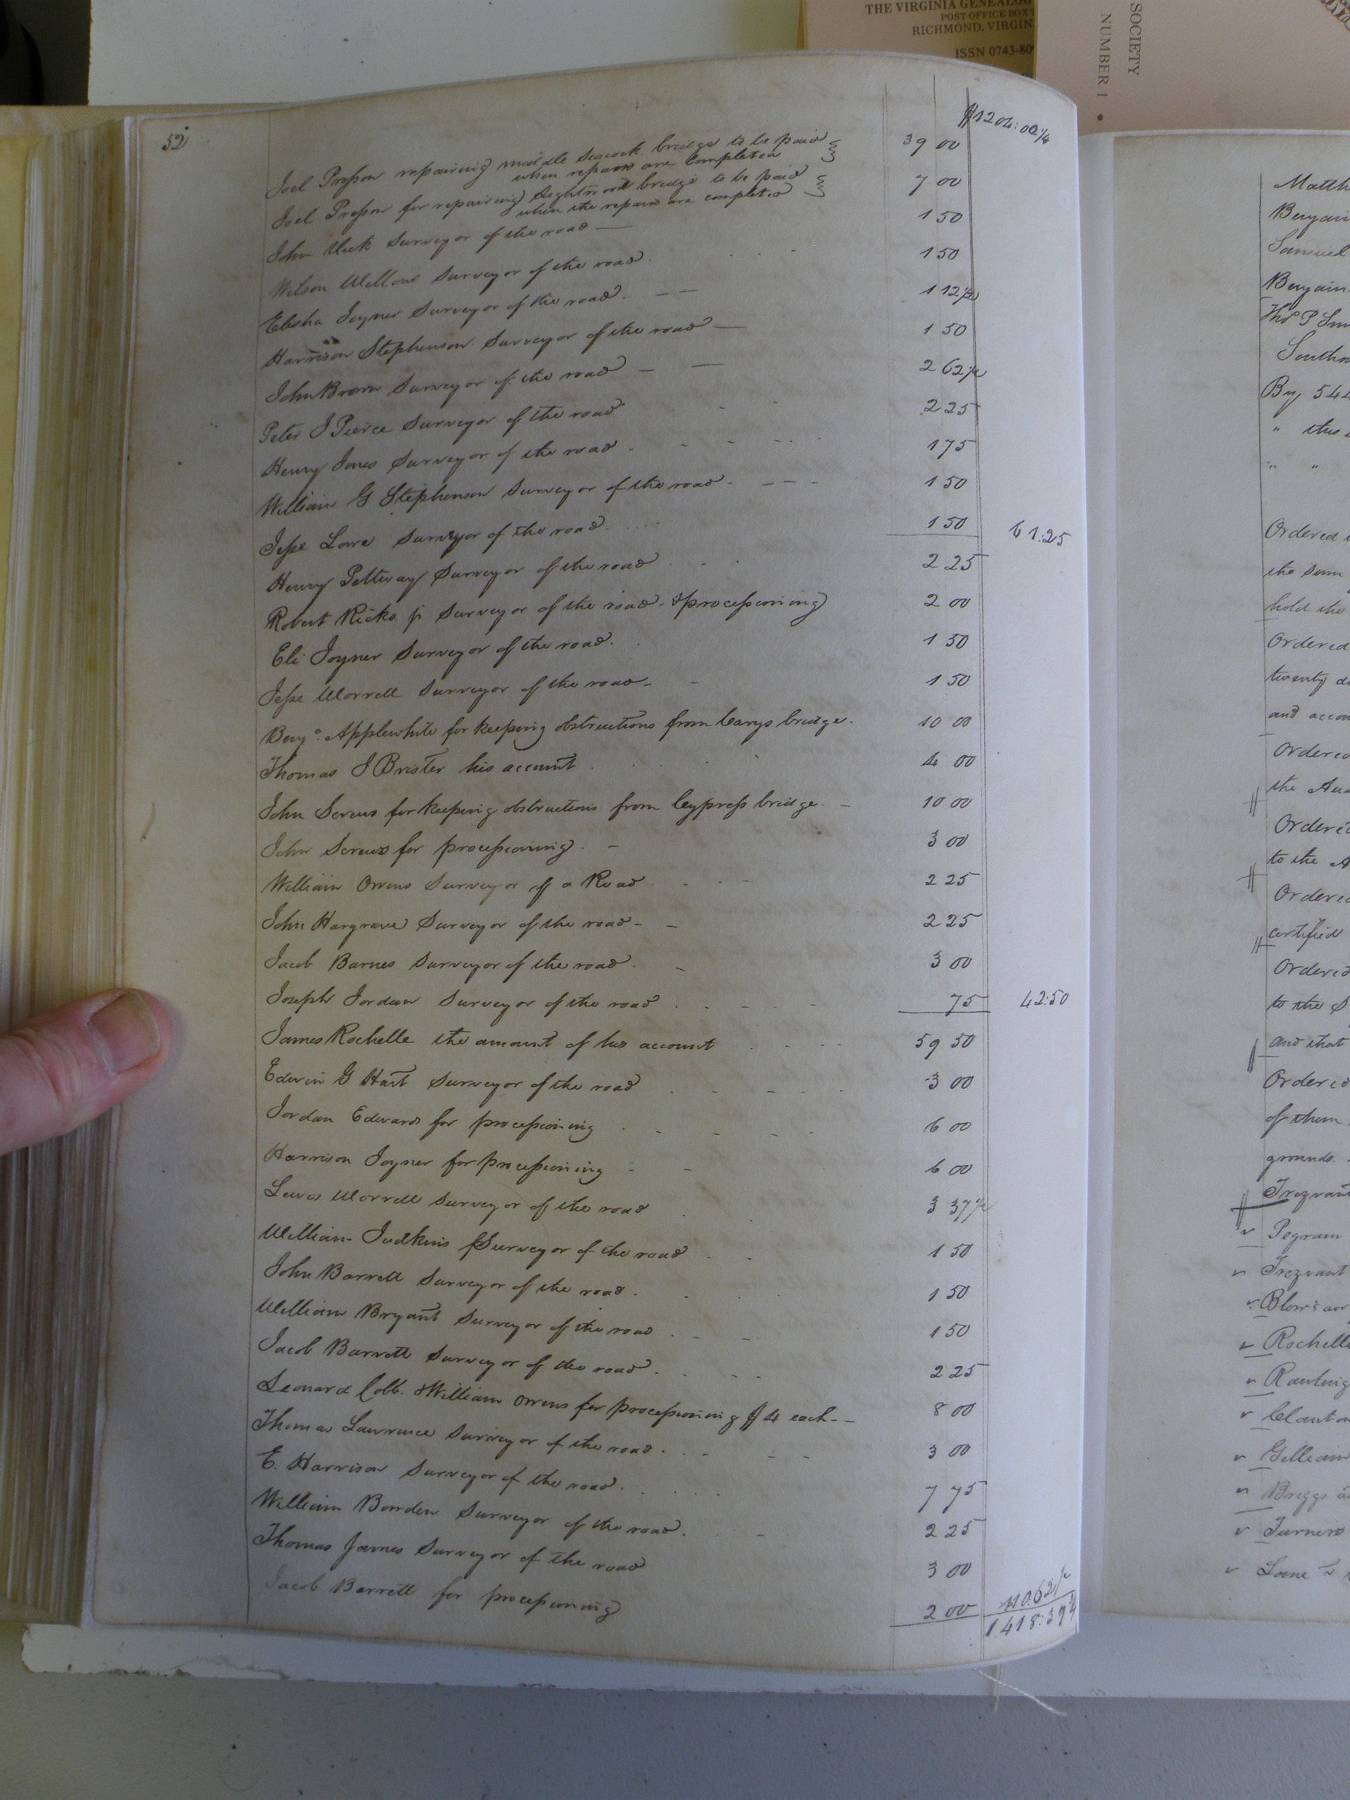 THE VIRGINIA GENEALOG
POST OFFICE BOX
RICHMOND, VIRGIN
ISSN 0743-80
SOCIETY
NUMBER 1
52
$1204:02¼
Joel Presson repairing middle Seacock bridge to be paid 39 00
when repairs are completed
Joel Presson for repairing bridge to be paid 7 00
when the repairs are completed
John Uick Surveyor of the road 1 50
Wilson Surveyor of the road 1 50
Elisha Joyner Surveyor of the road 1 12½
Harrison Stephenson Surveyor of the road 1 50
John Brown Surveyor of the road 2 62½
Peter J Pierce Surveyor of the road 2 25
Henry Jones Surveyor of the road 1 75
William G Stephenson Surveyor of the road 1 50
Jesse Lowe Surveyor of the road 1 50 61:25
Henry Pettway Surveyor of the road 2 25
Robert Ricks jr Surveyor of the road & processioning 2 00
Eli Joyner Surveyor of the road 1 50
Jesse Worrell Surveyor of the road 1 50
Benja Applewhite for keeping obstructions from Carys bridge 10 00
Thomas J Brister his account 4 00
John Screws for keeping obstructions from Cypress bridge 10 00
John Screws for processioning 3 00
William Owens Surveyor of a Road 2 25
John Hargrave Surveyor of the road 2 25
Jacob Barnes Surveyor of the road 3 00
Joseph Jordan Surveyor of the road 75 42:50
James Rochelle the amount of his account 59 50
Edwin G Hart Surveyor of the road 3 00
Jordan Edwards for processioning 6 00
Harrison Joyner for processioning 6 00
Lewis Worrell Surveyor of the road 3 37½
William Judkins Surveyor of the road 1 50
John Barrett Surveyor of the road 1 50
William Bryant Surveyor of the road 1 50
Jacob Barrett Surveyor of the road 2 25
Leonard Cobb & William Owens for processioning $4 each 8 00
Thomas Lawrence Surveyor of the road 3 00
E. Harrison Surveyor of the road 7 75
William Bowden Surveyor of the road 2 25
Thomas James Surveyor of the road 3 00
Jacob Barrett for processioning 2 00 110.62½
1.418:39¾
Matth
Benjam
Samuel
Benjam
Thos P Smi
South
By 54
" this
" "
Ordered
the sum
hold the
Ordered
twenty d
and accou
Ordered
the Au
Ordered
to the A
Ordered
certified
Ordered
to the S
and that
Ordered
of them
grounds
Trezvant
Pegram
Trezvant
Blow's
Rochelle
Rawling
Clanton
Gilliam
Briggs
Turners
Lane